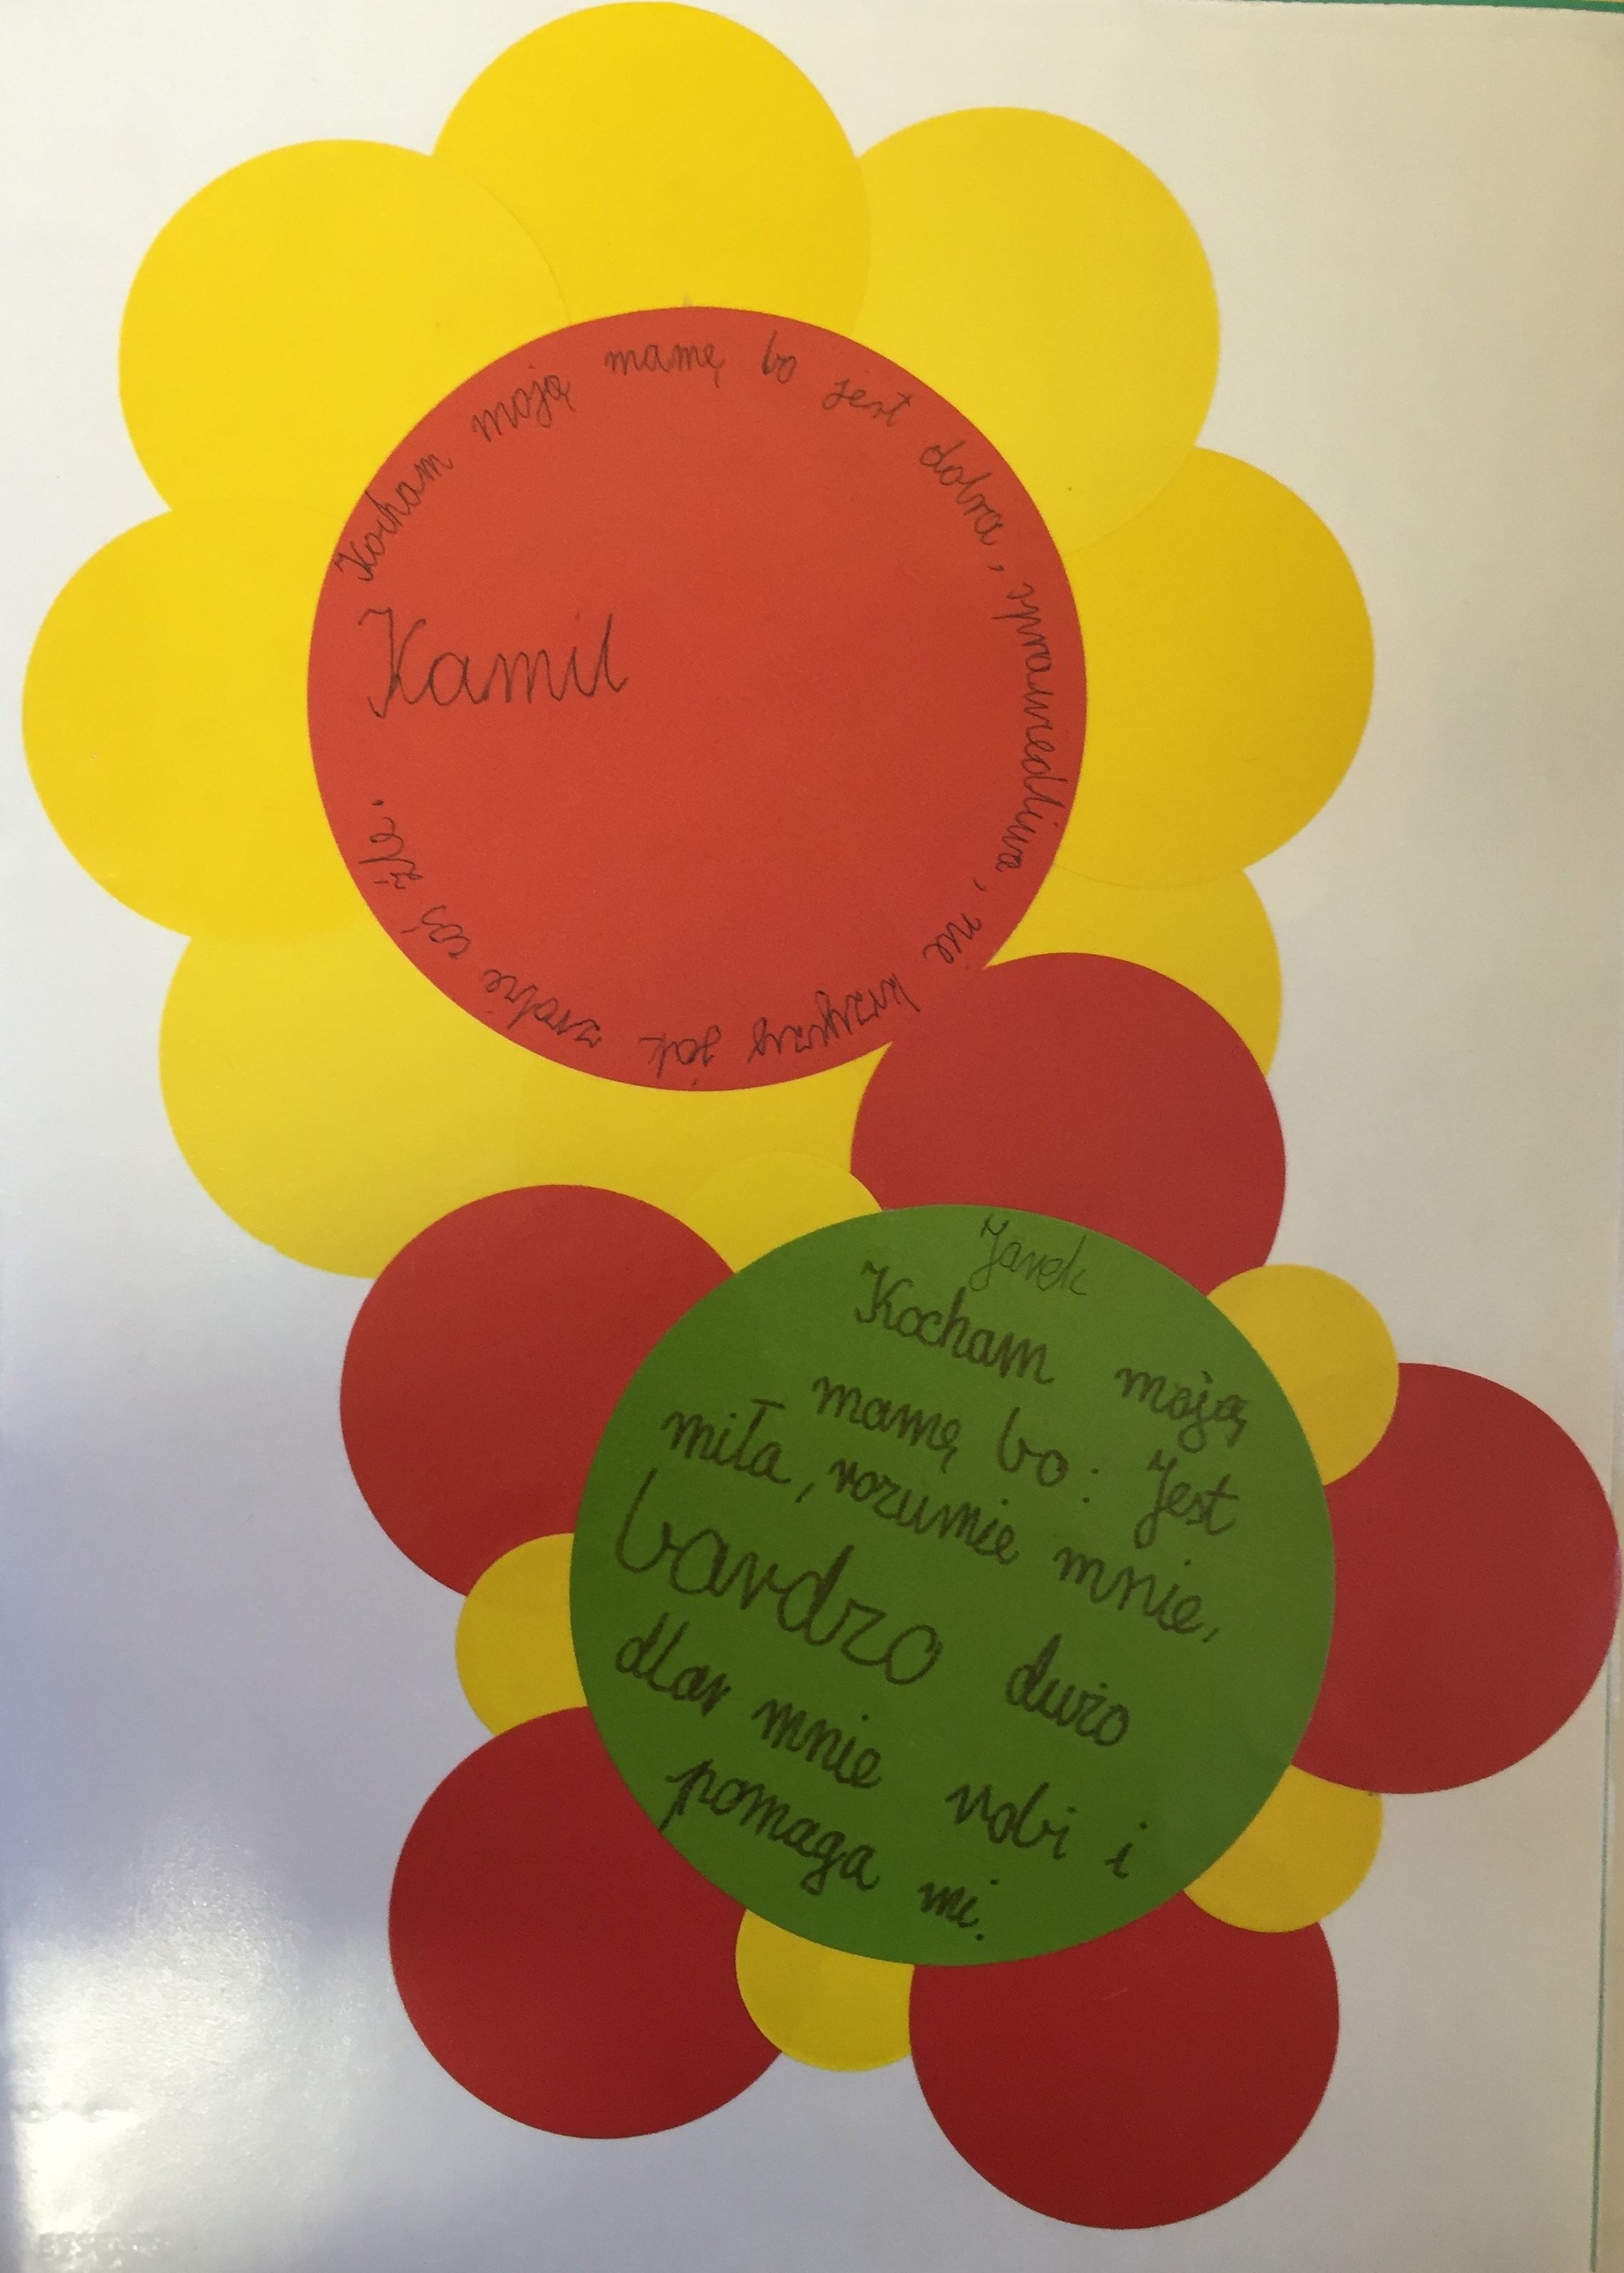 Kocham moją mamę bo jest dobra, sprawiedliwa, nie krzyczy jak zrobie coś źle.
Kamil
Jarek
Kocham moją
mamę bo: Jest
miła, rozumie mnie,
bardzo dużo
dla mnie robi i
pomaga mi.